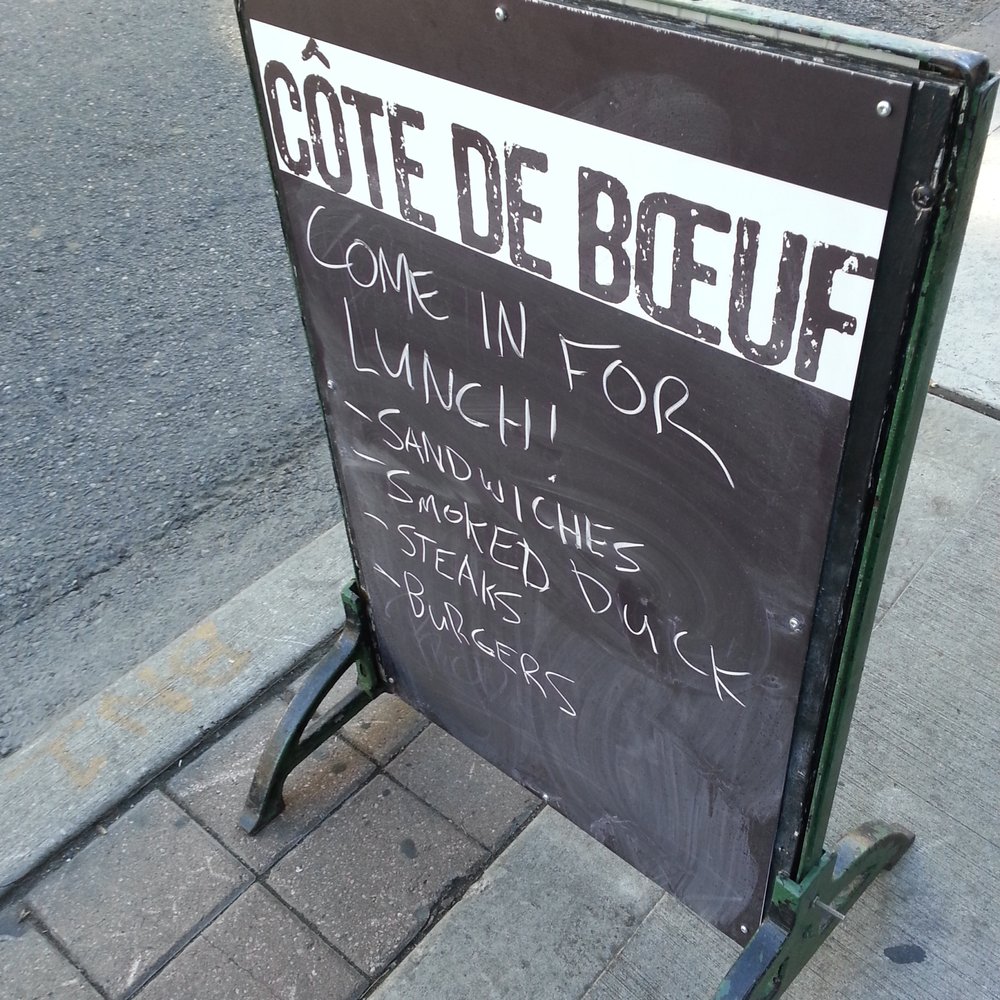 CÔTE DE BŒUF
COME IN FOR
LUNCH!
- SANDWICHES
- SMOKED DUCK
- STEAKS
- BURGERS